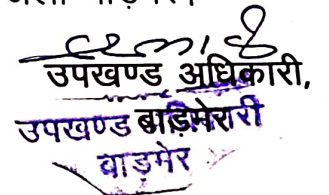 उपखण्ड अधिकारी,
उपखण्ड बाड़मेर
बाड़मेर